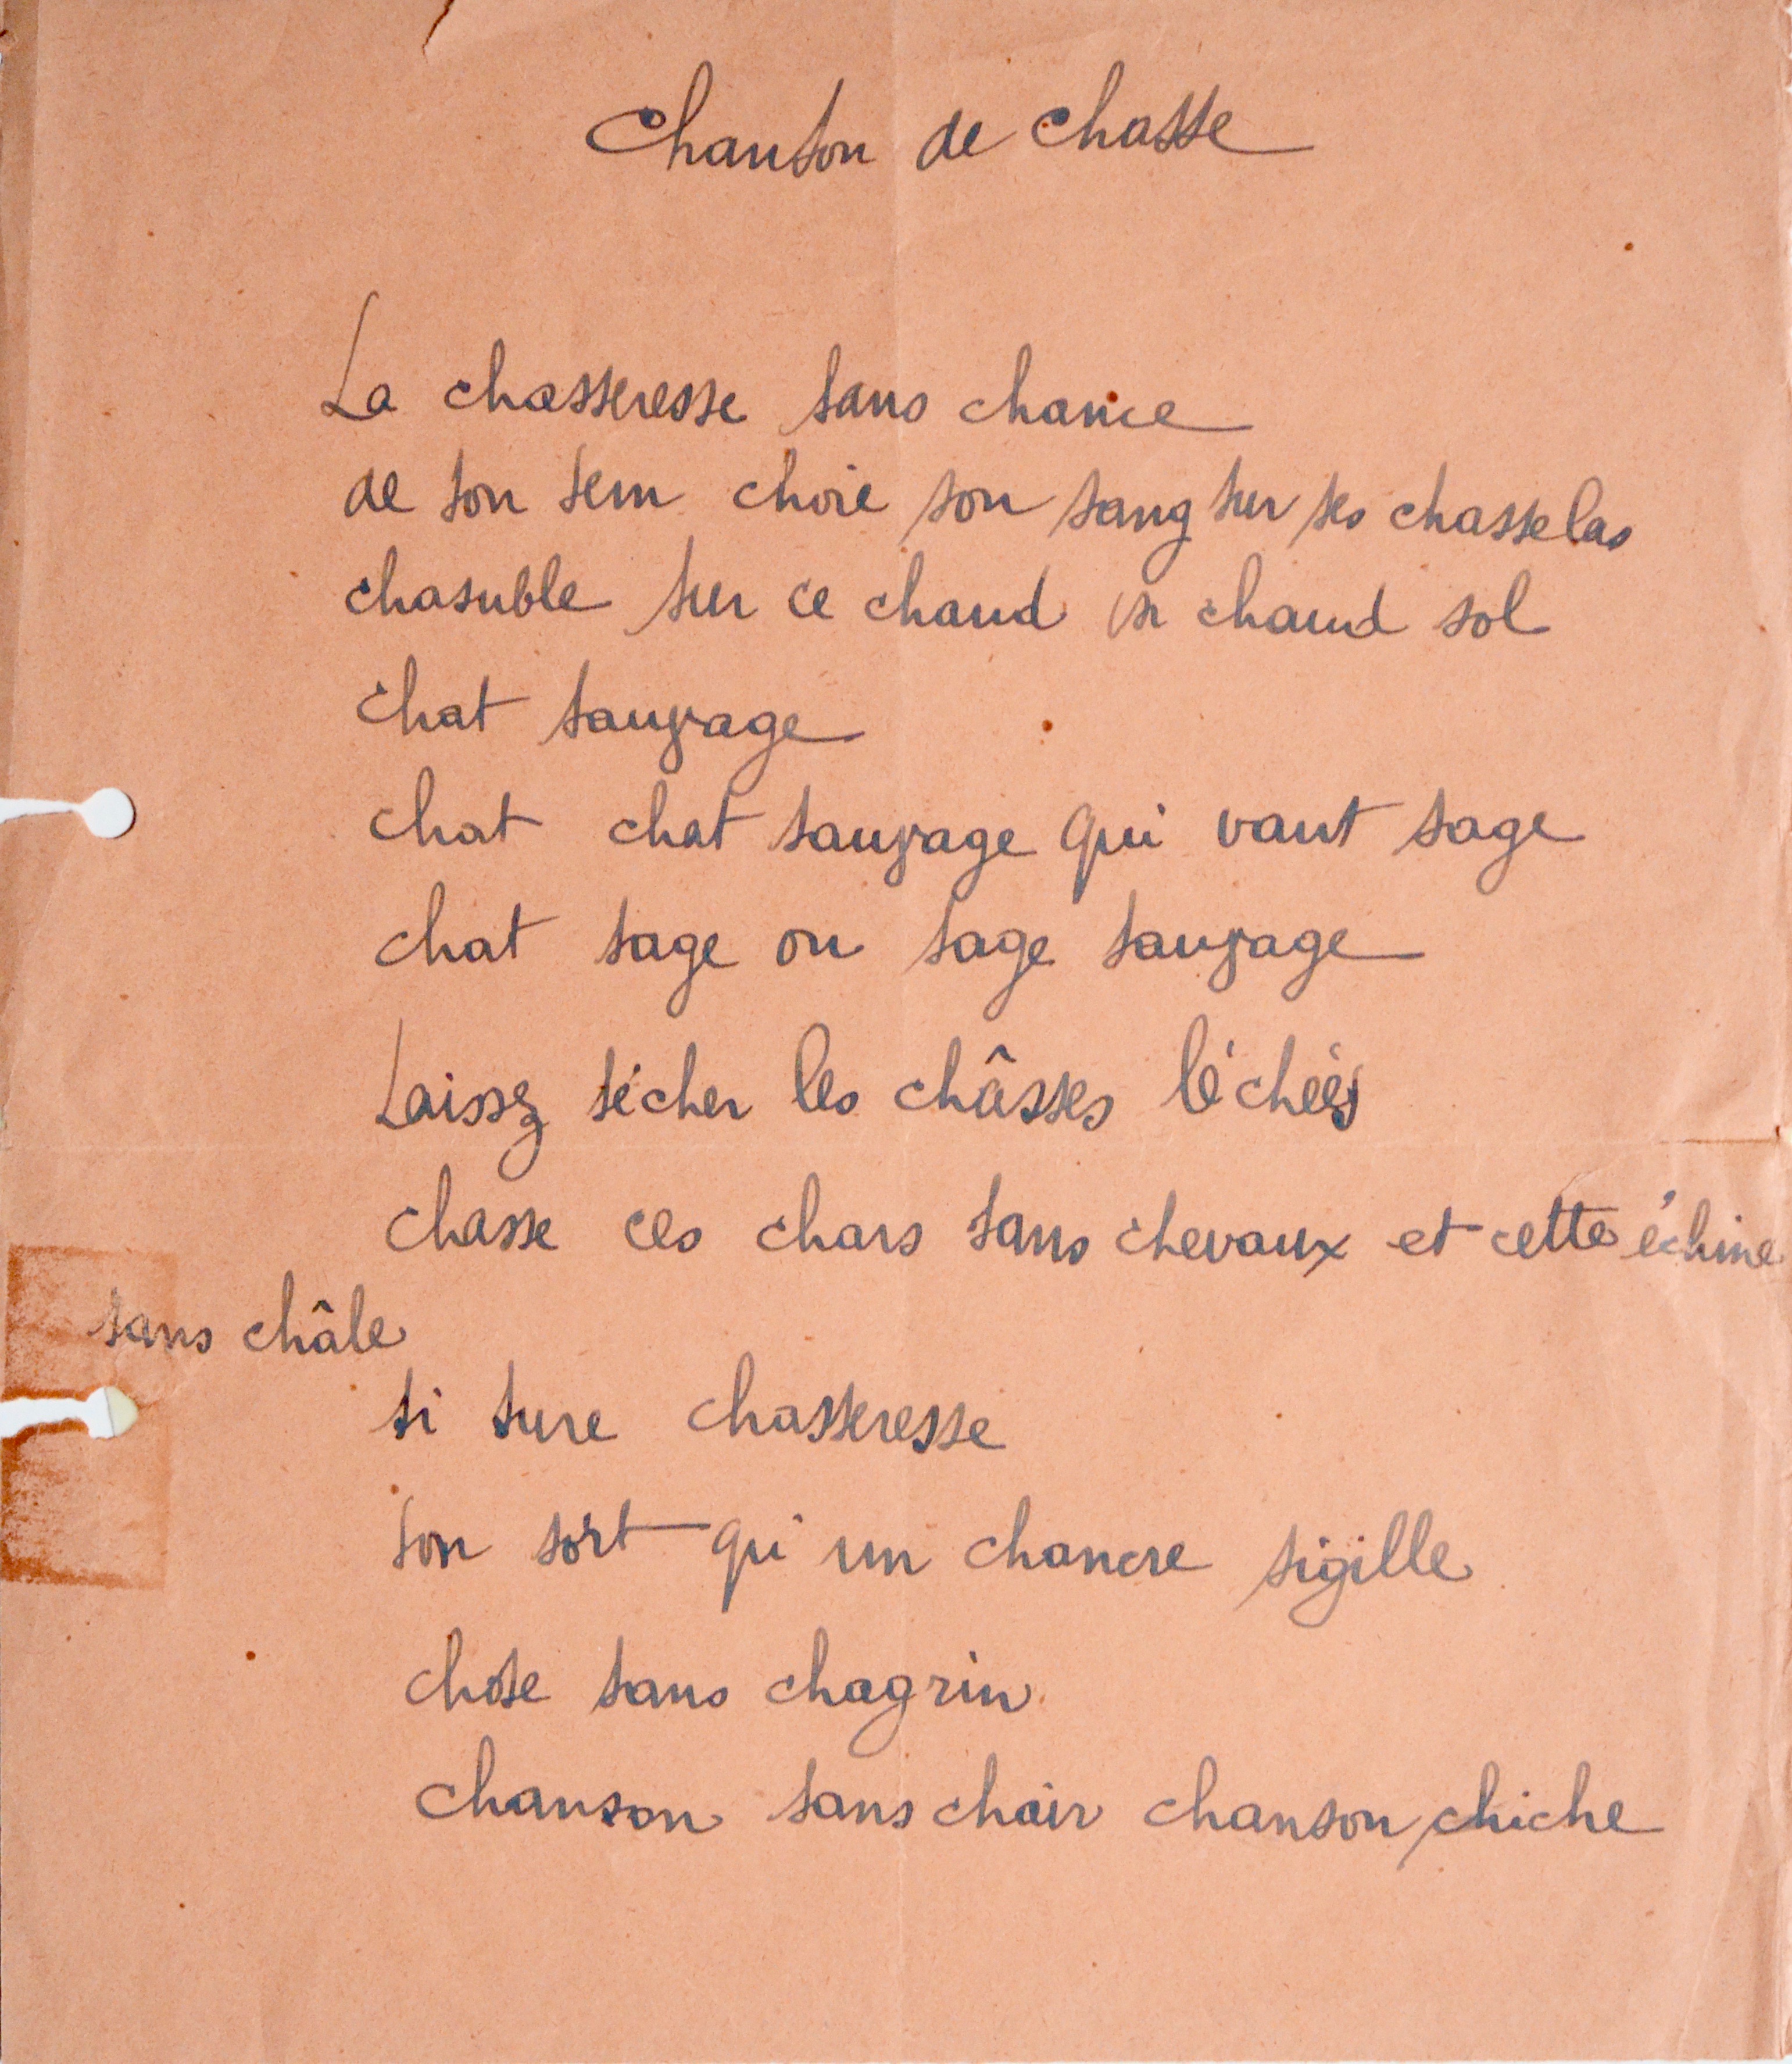 Chanson de chasse
La chasseresse sans chance
de son sein choie son sang sur ses chasselas
chasuble sur ce chaud si chaud sol
chat sauvage
chat chat sauvage qui vaut sage
chat sage ou sage sauvage
Laissez sécher les châsses léchées
chasse ces chars sans chevaux et cette échine
sans châle
si sure chasseresse
son sort qu'un chancre sigille
chose sans chagrin
chanson sans chair chanson chiche